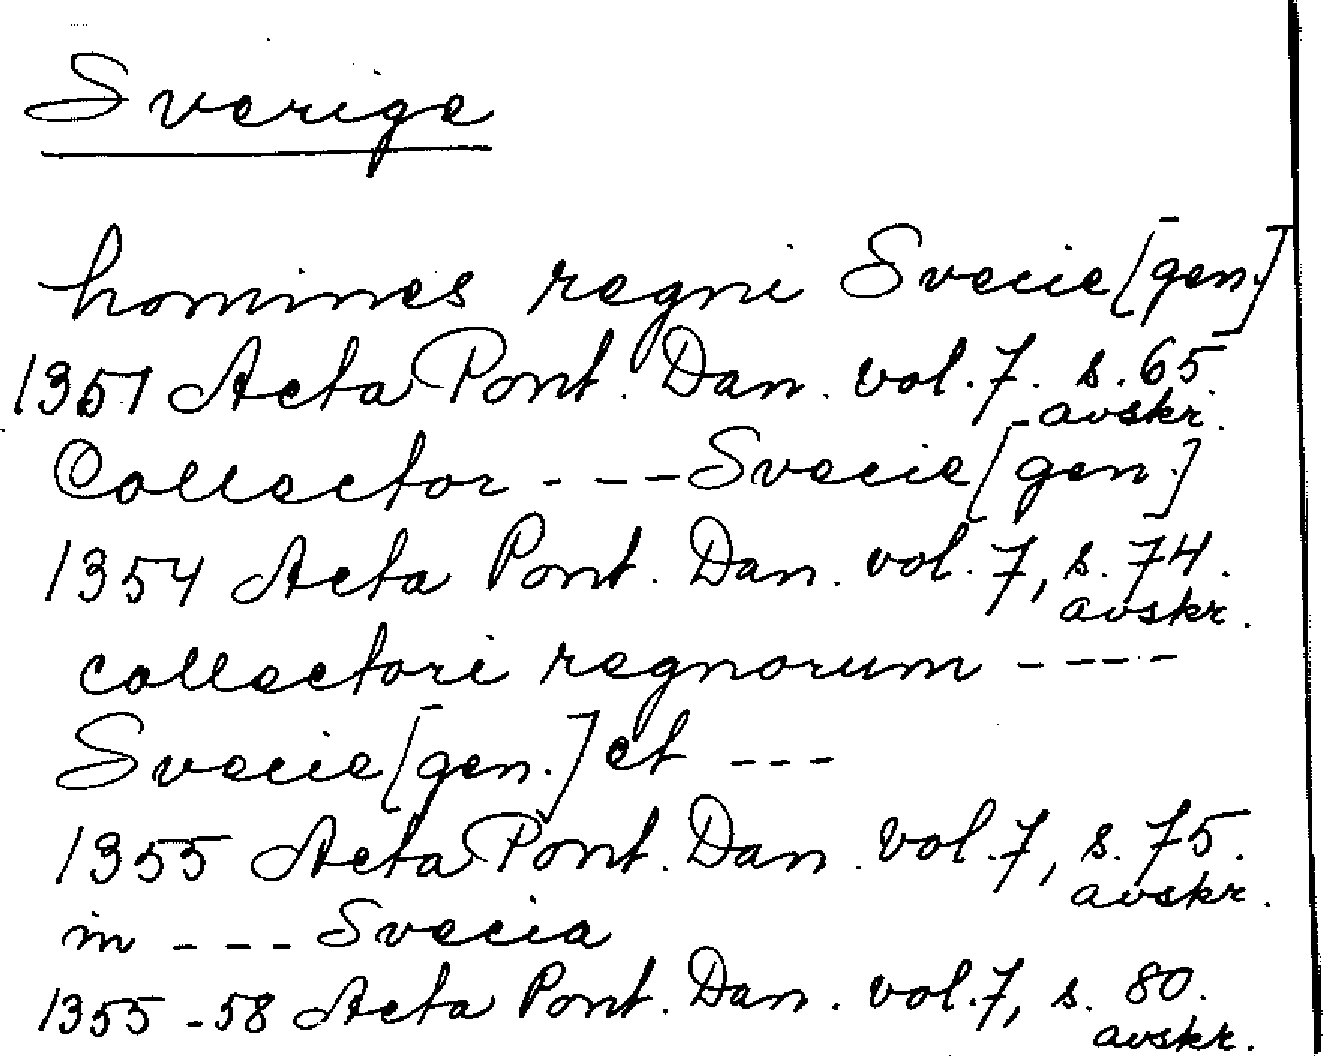 Sverige
homines regni Svecie [gen.]
1351 Acta Pont. Dan. vol. 7. s. 65.
avskr.
Collector - - - Svecie [gen.]
1354 Acta Pont. Dan. vol. 7, s. 74.
avskr.
collectori regnorum - - - -
Svecie [gen.] et - - -
1355 Acta Pont. Dan. vol. 7, s. 75.
avskr.
in - - - Svecia
1355-58 Acta Pont. Dan. vol. 7, s. 80.
avskr.